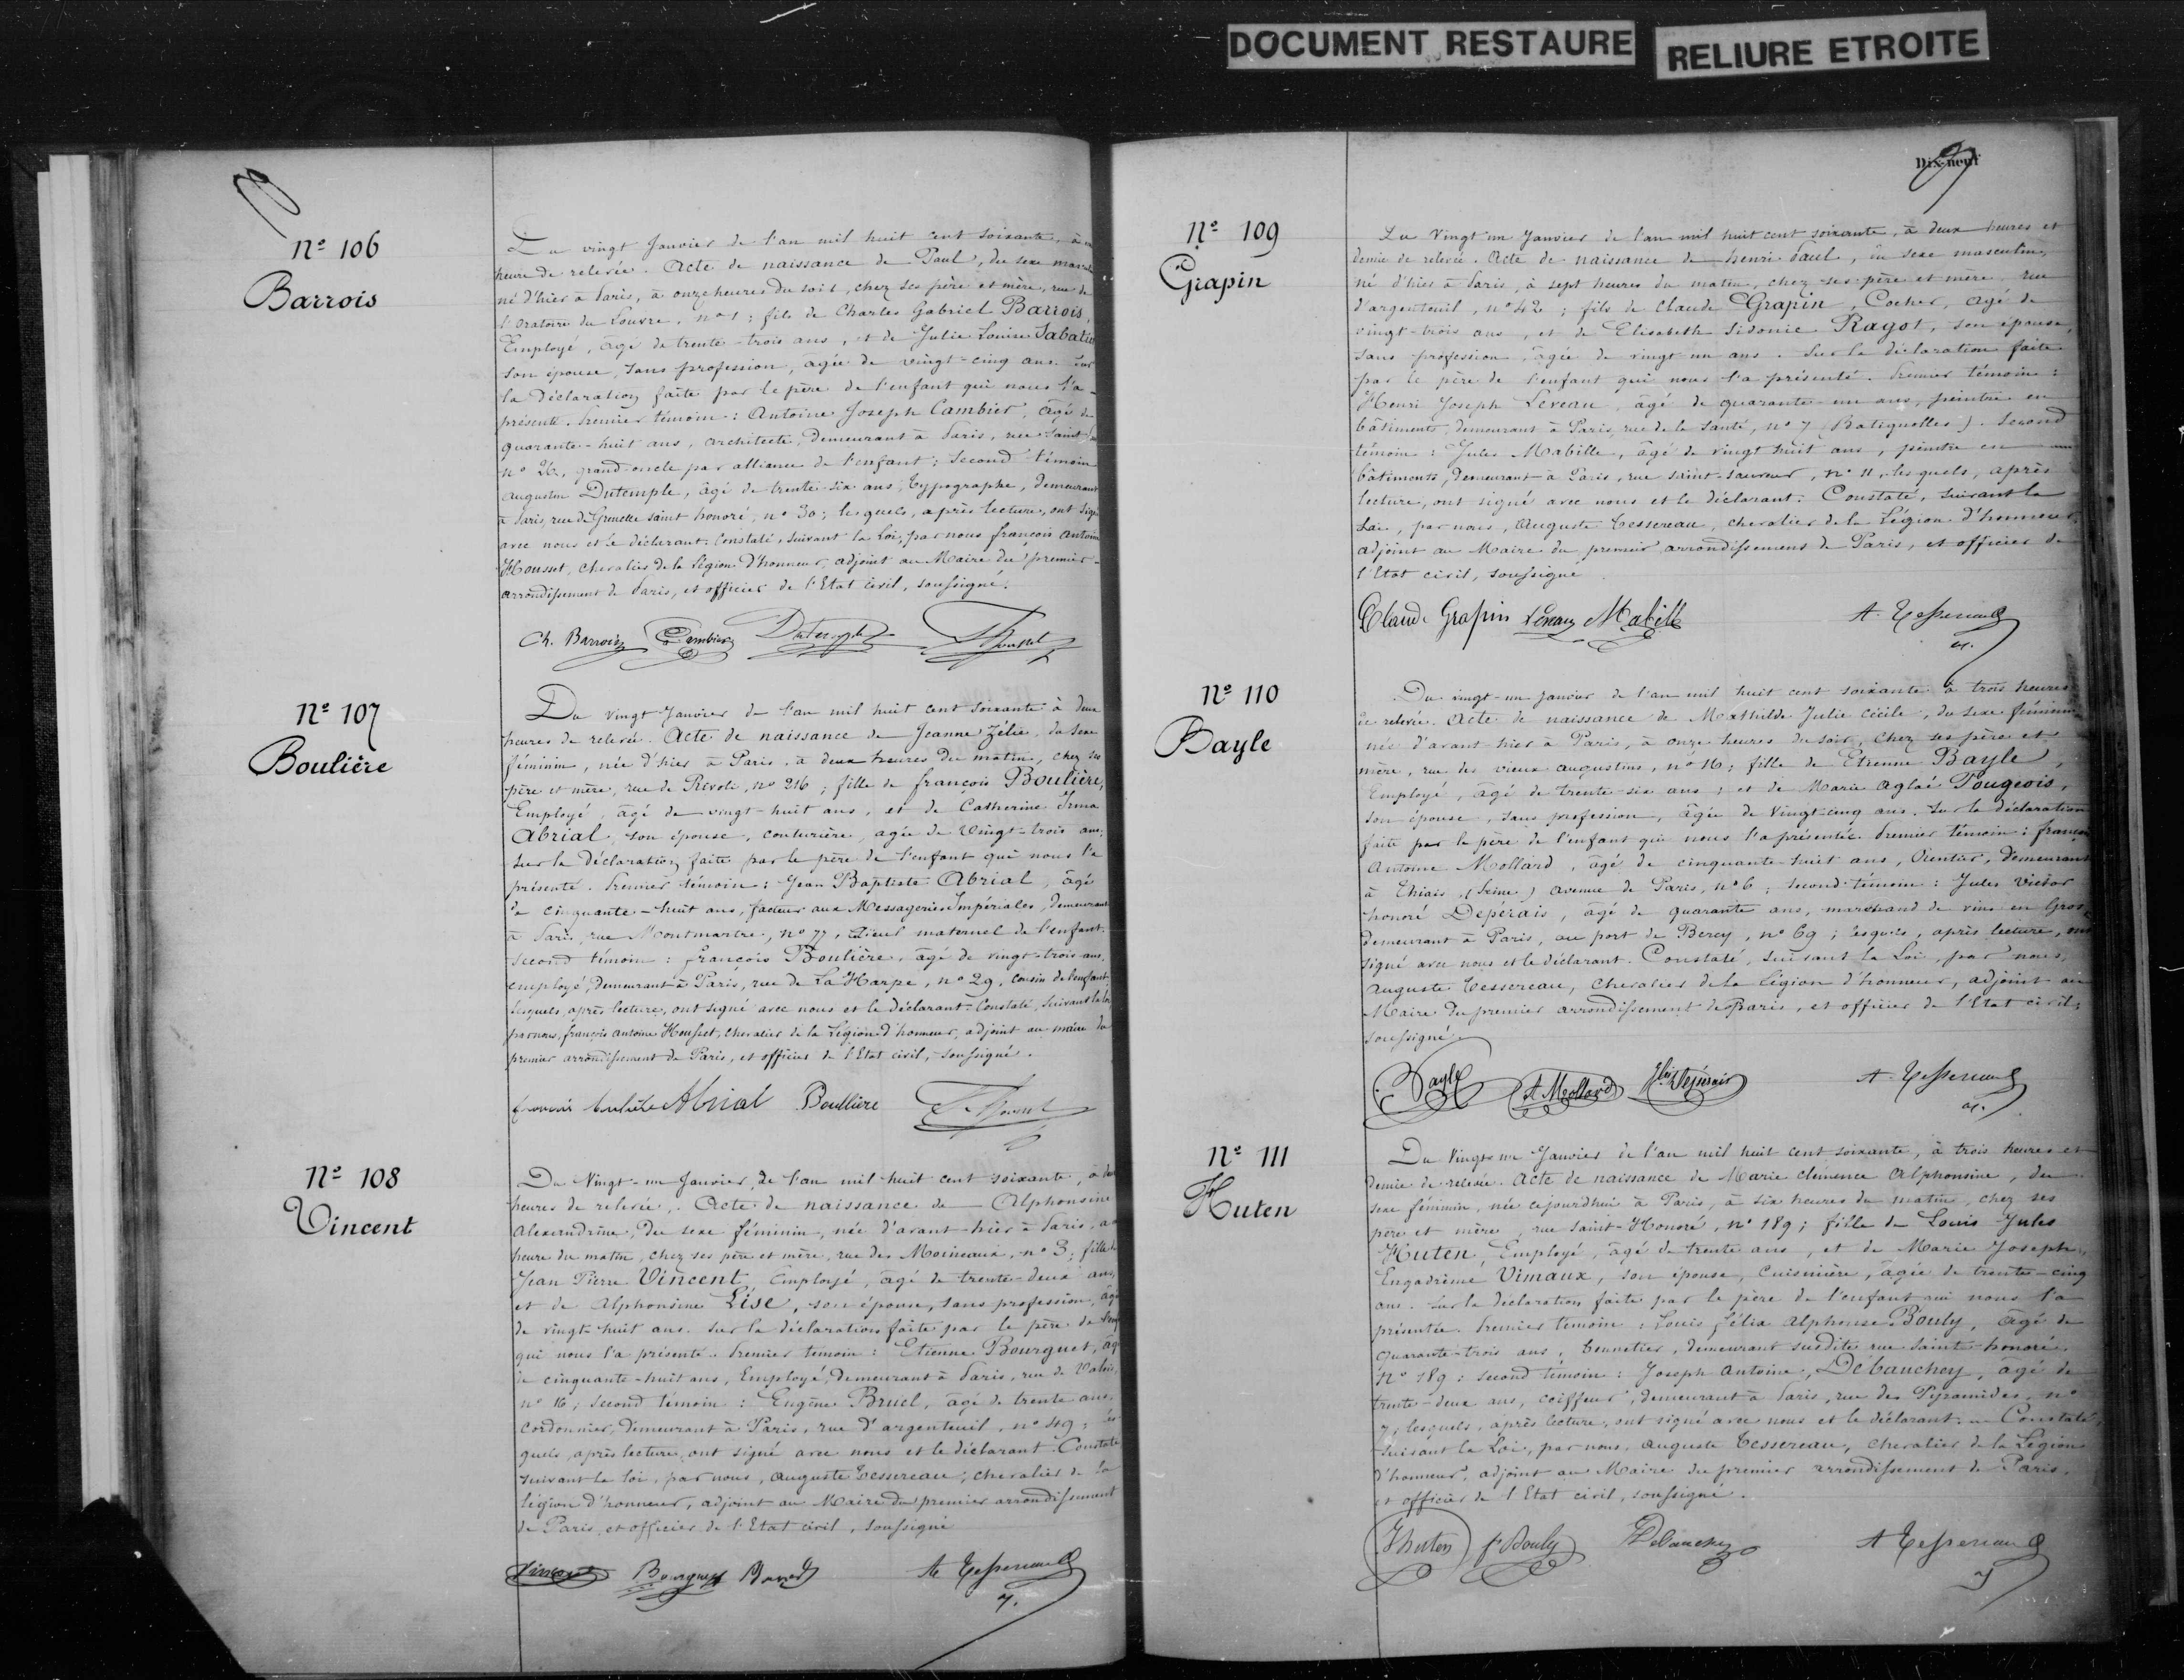 DOCUMENT RESTAURE
RELIURE ETROITE
Nº 106
Barrois
Du vingt Janvier de l'an mil huit cent soixante, à
heure de relevée. Acte de naissance de Paul, du sexe
né d'hier à Paris, à onze heures du soir, chez ses père et mère, rue de
l'oratoire du Louvre, nº 1; fils de Charles Gabriel Barrois,
Employé, âgé de trente-trois ans, et de Julie Louise Sabatier
son épouse, sans profession, âgée de vingt-cinq ans. Sur
la déclaration faite par le père de l'enfant qui nous l'a
présenté. Premier témoin: Antoine Joseph Cambier, âgé de
quarante-huit ans, architecte, demeurant à Paris, rue Saint
nº 26, grand oncle par alliance de l'enfant; second témoin
augustin Dutemple, âgé de trente-six ans, typographe, demeurant
à Paris, rue de Grenelle saint honoré, nº 30; lesquels, après lecture, ont signé
avec nous et le déclarant. Constaté, suivant la Loi, par nous françois antoine
Housset, chevalier de la Légion d'honneur, adjoint au Maire du premier
arrondissement de Paris, et officier de l'Etat civil, soussigné.
Ch. Barrois Cambier Dutemple Housset
Nº 107
Boulière
Du vingt Janvier de l'an mil huit cent soixante à deux
heures de relevée. Acte de naissance de Jeanne Zélie, du sexe
féminin, née d'hier à Paris, à deux heures du matin, chez ses
père et mère, rue de Rivoli, nº 216; fille de françois Boulière,
Employé, âgé de vingt-huit ans, et de Catherine Irma
Abrial, son épouse, couturière, âgée de vingt-trois ans;
sur la déclaration faite par le père de l'enfant qui nous l'a
présenté. Premier témoin: Jean Baptiste Abrial, âgé
de cinquante-huit ans, facteur aux Messageries Impériales, demeurant
à Paris, rue Montmartre, nº 77, aïeul maternel de l'enfant.
second témoin: françois Boulière, âgé de vingt-trois ans,
employé, demeurant à Paris, rue de La Harpe, nº 29, cousin de l'enfant;
lesquels, après lecture, ont signé avec nous et le déclarant. Constaté, suivant la loi,
par nous, françois antoine Housset, chevalier de la Légion d'honneur, adjoint au maire du
premier arrondissement de Paris, et officier de l'Etat civil, soussigné.
françois boulière Abrial Boullière Housset
Nº 108
Vincent
Du Vingt-un Janvier de l'an mil huit cent soixante, à deux
heures de relevée. Acte de naissance de Alphonsine
Alexandrine, du sexe féminin, née d'avant-hier à Paris, à
heure du matin, chez ses père et mère, rue des Moineaux, nº 3; fille de
Jean Pierre Vincent, Employé, âgé de trente-deux ans,
et de Alphonsine Lise, son épouse, sans profession, âgée
de vingt-huit ans. Sur la déclaration faite par le père de
qui nous l'a présenté. Premier témoin: Etienne Bourguet, âgé
de cinquante-huit ans, Employé, demeurant à Paris, rue de Valois,
nº 16, second témoin: Eugène Bruel, âgé de trente ans,
cordonnier, demeurant à Paris, rue d'argenteuil, nº 49; les
quels, après lecture, ont signé avec nous et le déclarant. Constaté
suivant la loi, par nous, Auguste Tessereau, chevalier de la
légion d'honneur, adjoint au Maire du premier arrondissement
de Paris, et officier de l'Etat civil, soussigné
Vincent Bourguet Bruel A Tessereau
Dix-neuf
Nº 109
Grapin
Du Vingt un Janvier de l'an mil huit cent soixante, à deux heures et
demie de relevée. Acte de naissance de henri Paul, du sexe masculin,
né d'hier à Paris, à sept heures du matin, chez ses père et mère, rue
d'argenteuil, nº 42; fils de Claude Grapin, Cocher, âgé de
vingt-trois ans, et de Elisabeth Sidonie Ragot, son épouse,
sans profession, âgée de vingt-un ans. Sur la déclaration faite
par le père de l'enfant qui nous l'a présenté. Premier témoin:
Henri Joseph Leveau, âgé de quarante-un ans, peintre en
bâtiments, demeurant à Paris, rue de la Santé, nº 7 (Batignolles). Second
témoin: Jules Mabille, âgé de vingt huit ans, peintre en
bâtiments, demeurant à Paris, rue saint-sauveur, nº 11, lesquels, après
lecture, ont signé avec nous et le déclarant. Constaté, suivant la
Loi, par nous, Auguste Tessereau, chevalier de la Légion d'honneur,
adjoint au Maire du premier arrondissement de Paris, et officier de
l'Etat civil, soussigné
Claude Grapin Leveau Mabille A. Tessereau
Nº 110
Bayle
Du vingt-un janvier de l'an mil huit cent soixante à trois heures
de relevée. Acte de naissance de Mathilde Julie Cécile, du sexe féminin
née d'avant hier à Paris, à onze heures du soir, chez ses père et
mère, rue des vieux augustins, nº 16; fille de Etienne Bayle,
Employé, âgé de trente-six ans; et de Marie aglaé Pougeois,
son épouse, sans profession, âgée de vingt-cinq ans. Sur la déclaration
faite par le père de l'enfant qui nous l'a présentée. Premier témoin: françois
Antoine Mollard, âgé de cinquante-huit ans, Rentier, demeurant
à Thiais (Seine) avenue de Paris, nº 6; second témoin: Jules Victor
honoré Depérais, âgé de quarante ans, marchand de vins en Gros,
demeurant à Paris, au port de Bercy, nº 69; lesquels, après lecture, ont
signé avec nous et le déclarant. Constaté, suivant la Loi, par nous,
Auguste Tessereau, chevalier de la Légion d'honneur, adjoint au
Maire du premier arrondissement de Paris, et officier de l'Etat civil,
soussigné.
Bayle A. Mollard Depérais A. Tessereau
Nº 111
Huten
Du Vingt un Janvier de l'an mil huit cent soixante, à trois heures et
demie de relevée. Acte de naissance de Marie Clémence Alphonsine, du
sexe féminin, née cejourd'hui à Paris, à six heures du matin, chez ses
père et mère, rue saint-Honoré, nº 189; fille de Louis Jules
Huten, Employé, âgé de trente ans, et de Marie Joseph
Engadrème Vimaux, son épouse, cuisinière, âgée de trente-cinq
ans. Sur la déclaration faite par le père de l'enfant qui nous l'a
présentée. Premier témoin: Louis félix alphonse Bouly, âgé de
quarante-trois ans, bonnetier, demeurant susdite rue Saint-honoré,
nº 189; second témoin: Joseph Antoine Débauchey, âgé de
trente-deux ans, coiffeur, demeurant à Paris, rue des Pyramides, nº
7, lesquels, après lecture, ont signé avec nous et le déclarant. Constaté,
suivant la Loi, par nous, Auguste Tessereau, chevalier de la Légion
d'honneur, adjoint au Maire du premier arrondissement de Paris,
et officier de l'Etat civil, soussigné.
Jhuten f. Bouly Debauchey A Tessereau